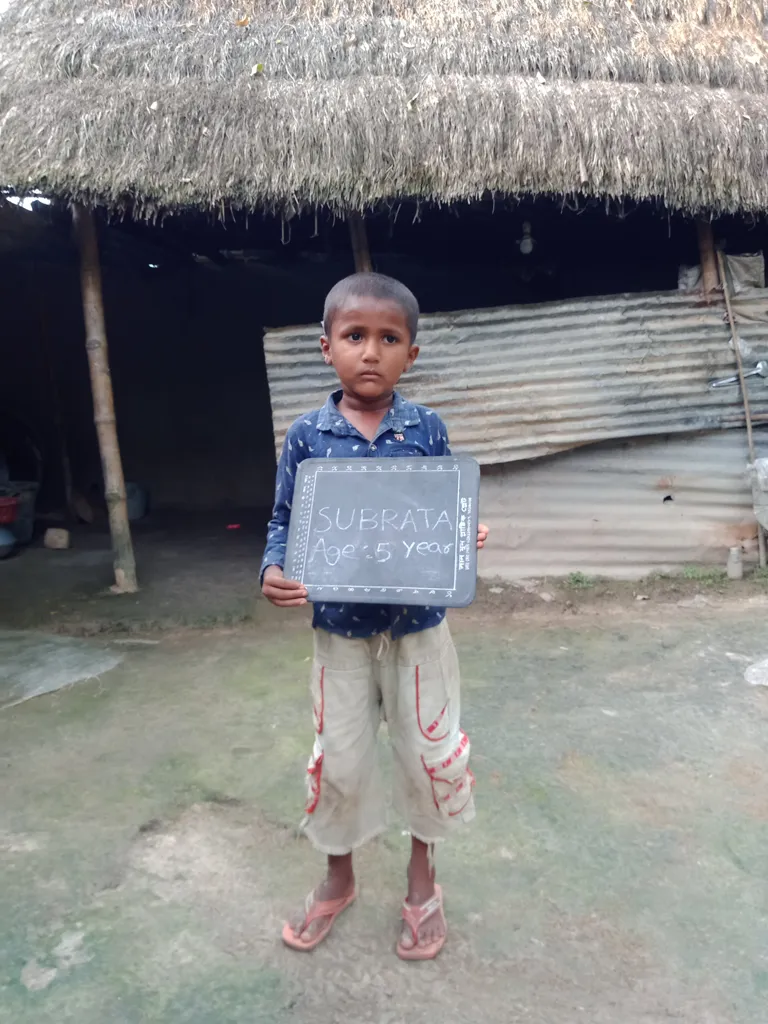 SUBRATA
Age :5 year